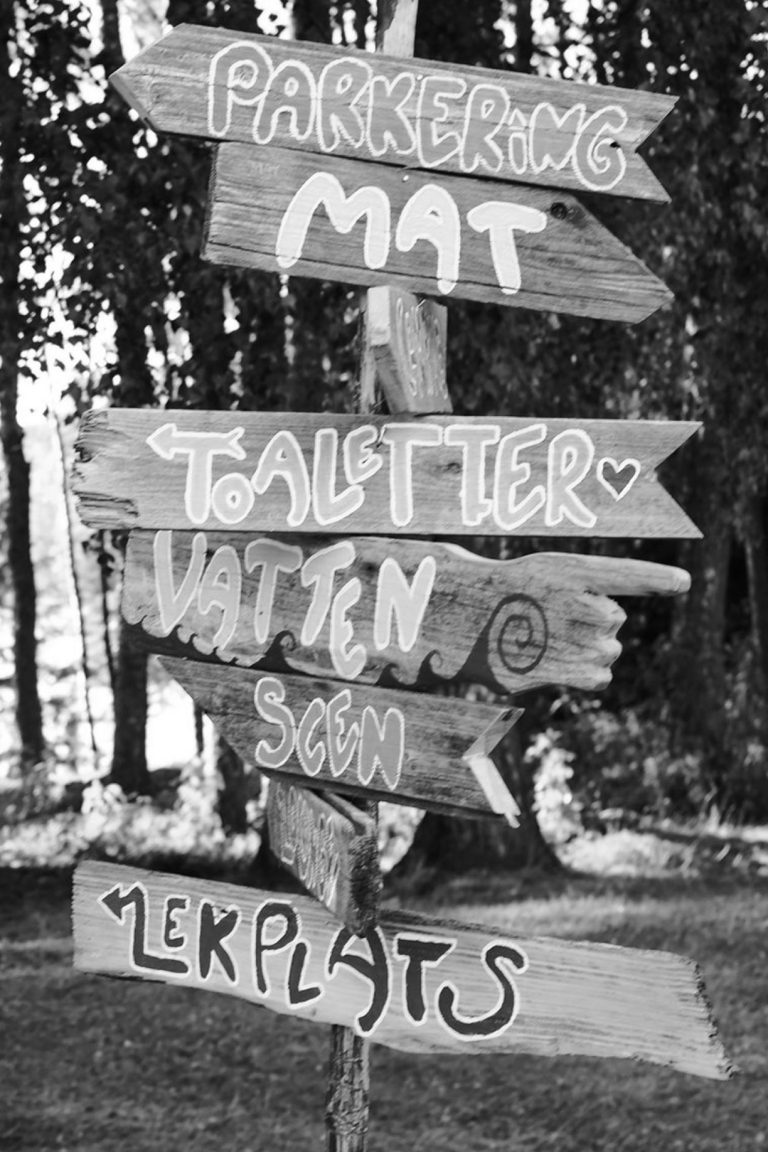 PARKERING
MAT
TOALETTER
VATTEN
SCEN
LEKPLATS